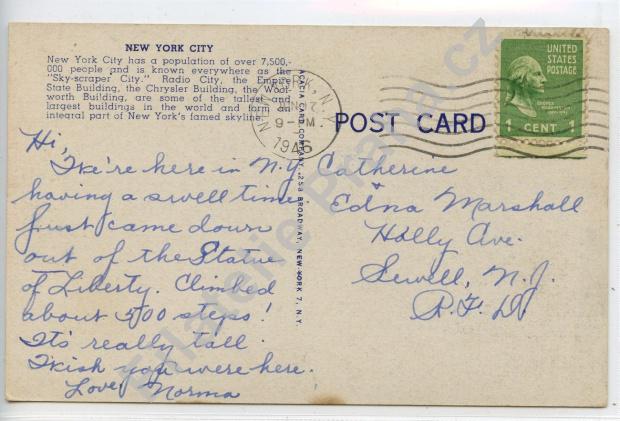 NEW YORK CITY
New York City has a population of over 7,500,-
000 people and is known everywhere as the
"Sky-scraper City." Radio City, the Empire
State Building, the Chrysler Building, the Wool-
worth Building, are some of the tallest and
largest buildings in the world and form an
integral part of New York's famed skyline.
Hi,
We're here in N.Y.
having a swell time.
Just came down
out of the Statue
of Liberty. Climbed
about 500 steps!
It's really tall.
Wish you were here.
Love, Norma
ACACIA CARD COMPANY, 258 BROADWAY, NEW YORK 7, N.Y.
NEW YORK, N.Y.
9 - PM
1946
POST CARD
UNITED
STATES
POSTAGE
1 CENT 1
Catherine
+
Edna Marshall
Holly Ave.
Sewell, N. J.
R.F.D.
Filatelie Praha.cz